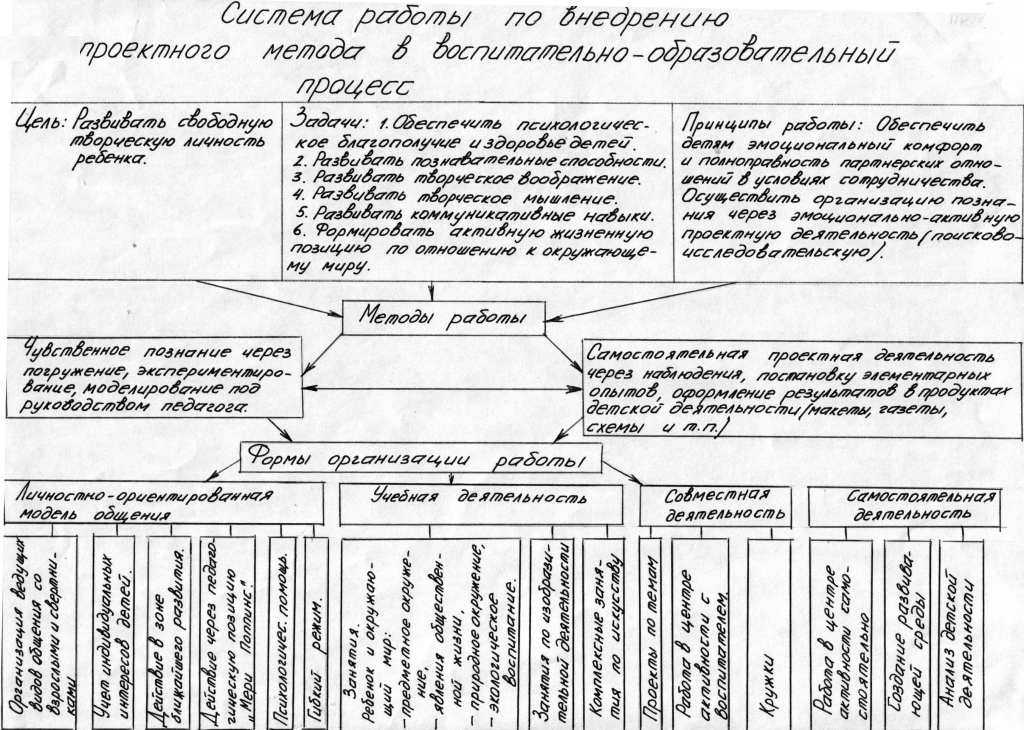 Система работы по внедрению
проектного метода в воспитательно-образовательный
процесс
Цель: Развивать свободную
творческую личность
ребенка.
Задачи: 1. Обеспечить психологичес-
кое благополучие и здоровье детей.
2. Развивать познавательные способности.
3. Развивать творческое воображение.
4. Развивать творческое мышление.
5. Развивать коммуникативные навыки.
6. Формировать активную жизненную
позицию по отношению к окружающе-
му миру.
Принципы работы: Обеспечить
детям эмоциональный комфорт
и полноправность партнерских отно-
шений в условиях сотрудничества.
Осуществить организацию позна-
ния через эмоционально-активную
проектную деятельность (поисково-
исследовательскую).
Методы работы
Чувственное познание через
погружение, экспериментиро-
вание, моделирование под
руководством педагога.
Самостоятельная проектная деятельность
через наблюдения, постановку элементарных
опытов, оформление результатов в продуктах
детской деятельности (макеты, газеты,
схемы и т.п.)
Формы организации работы
Личностно-ориентированная
модель общения
Учебная деятельность
Совместная
деятельность
Самостоятельная
деятельность
Организация ведущих
видов общения со
взрослыми и сверстни-
ками
Учет индивидуальных
интересов детей.
Действие в зоне
ближайшего развития.
Действие через педаго-
гическую позицию
"Мери Поппинс".
Психологичес. помощь.
Гибкий режим.
Занятия.
Ребенок и окружаю-
щий мир:
- предметное окруже-
ние,
- явления обществен-
ной жизни,
- природное окружение,
- экологическое
воспитание.
Занятия по изобрази-
тельной деятельности
Комплексные заня-
тия по искусству
Проекты по темам
Работа в центре
активности с
воспитателем.
Кружки
Работа в центре
активности само-
стоятельно
Создание развива-
ющей среды
Анализ детской
деятельности